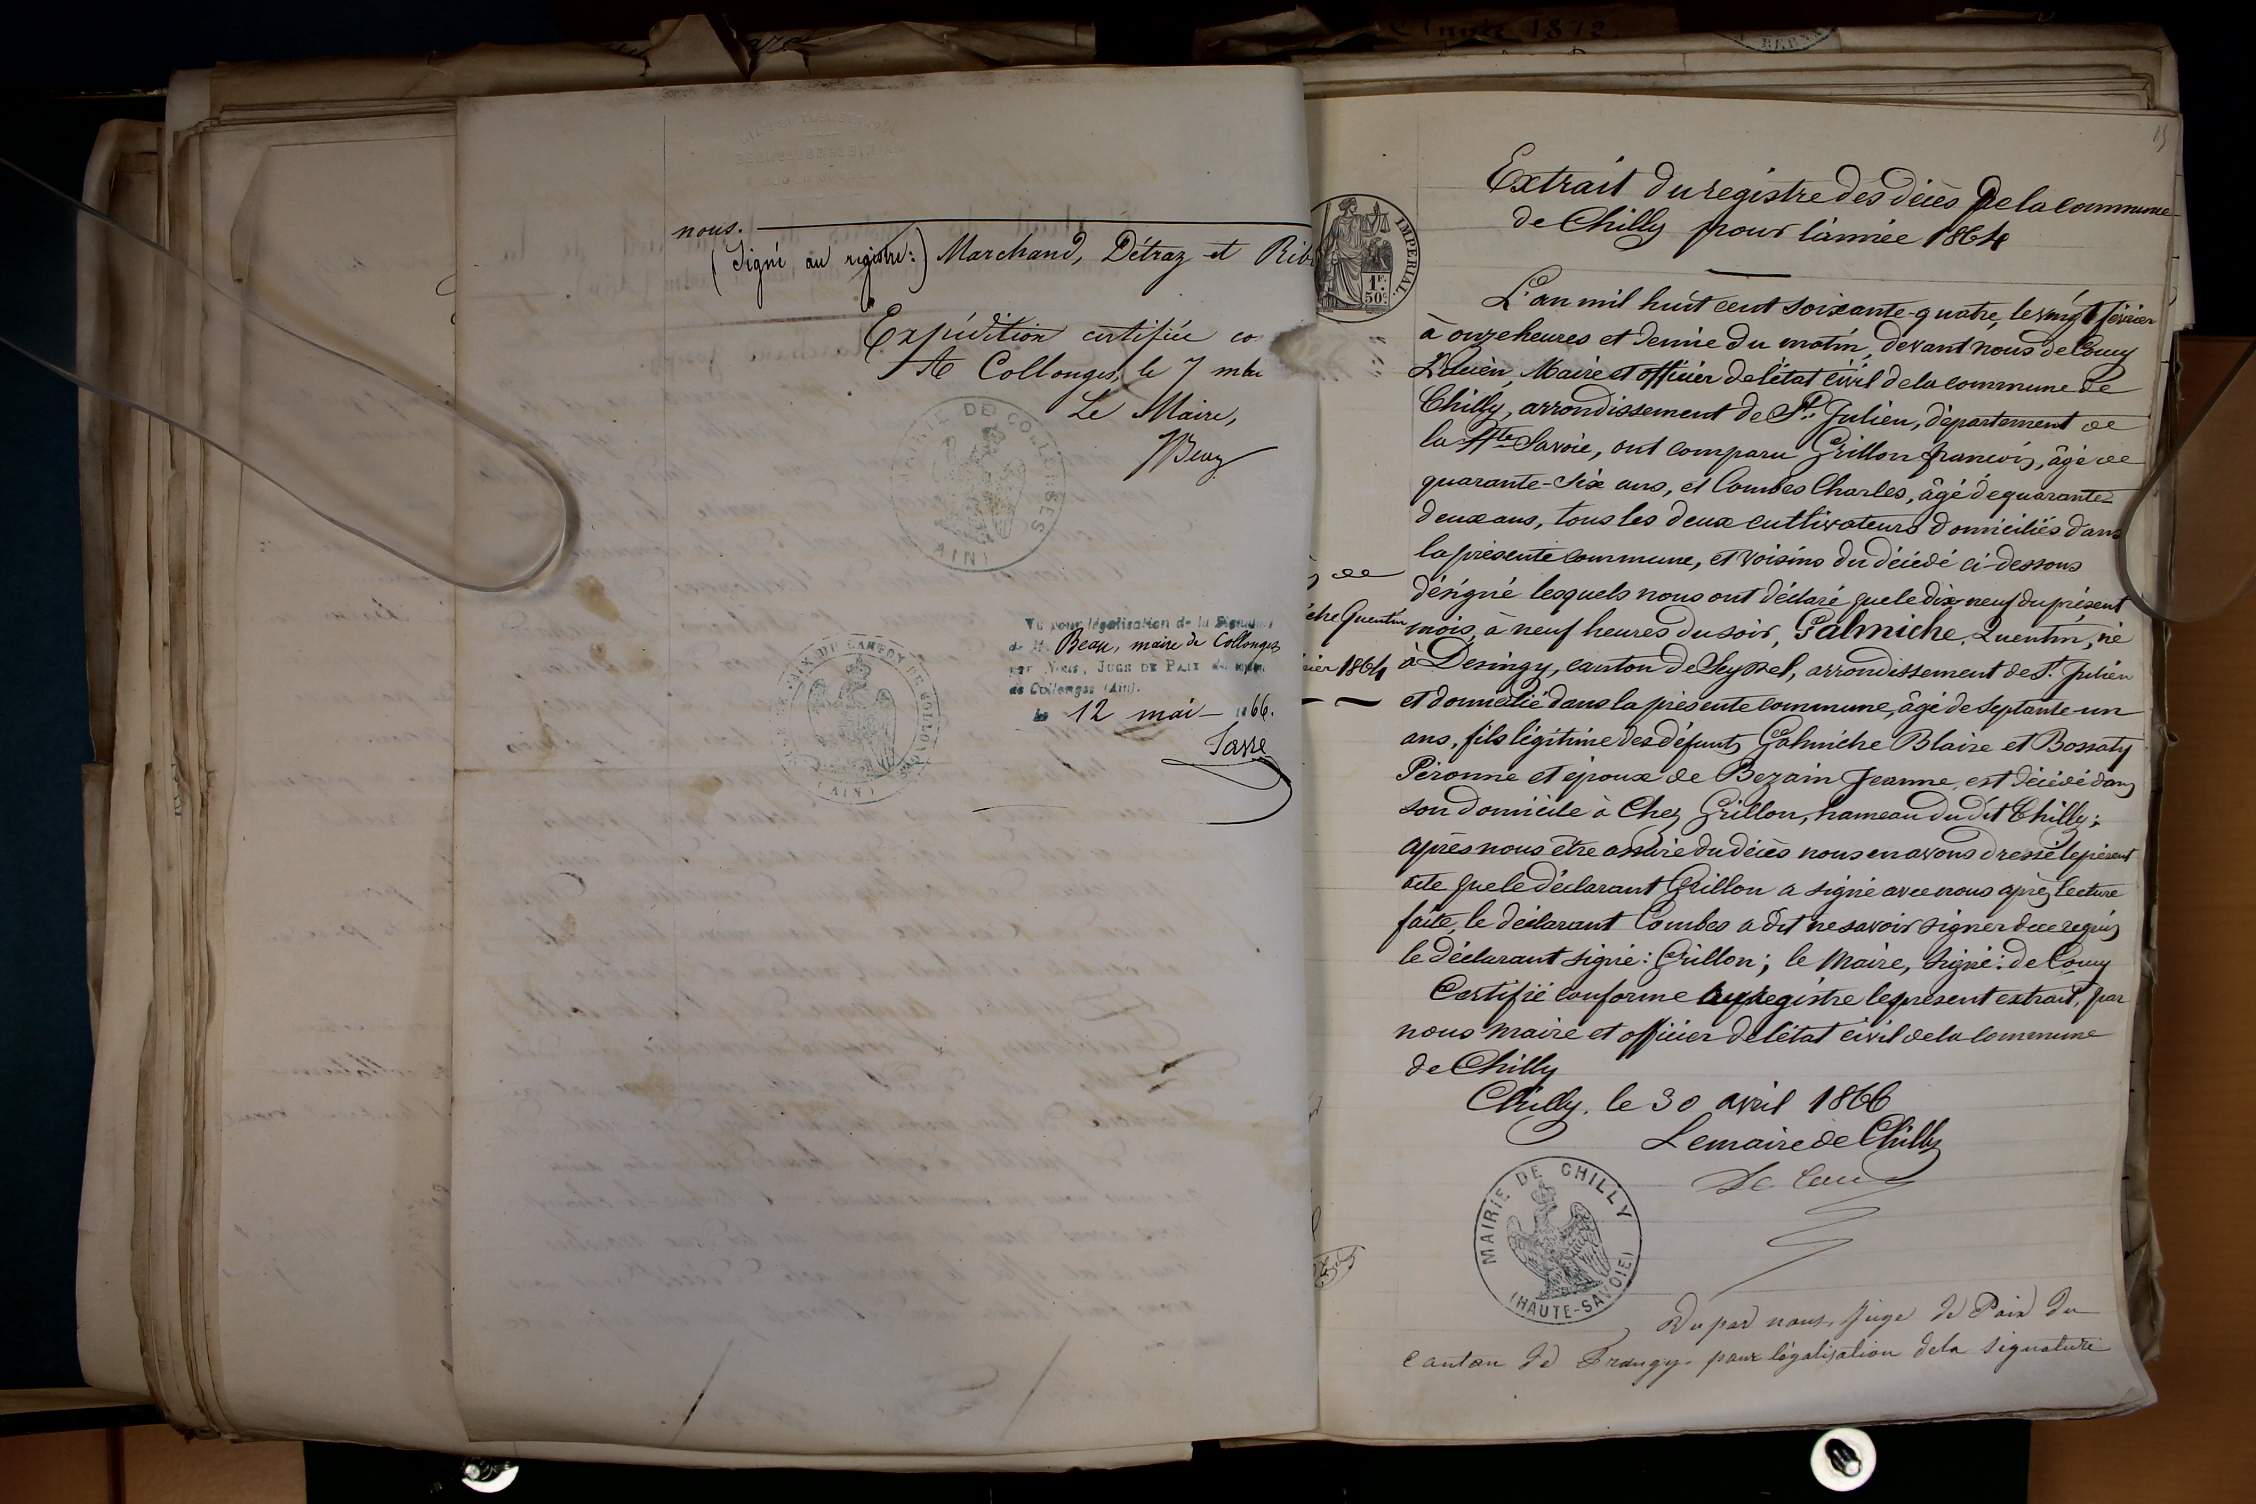 nous.
(Signé au registre:) Marchand, Détraz et Rib
Expédition certifiée co
A Collonges, le 7 mai
Le Maire,
JBeau
MAIRIE DE COLLONGES
(AIN)
Vu pour légalisation de la Signature
de M. Beau, maire de Collonges
par Nous, JUGE DE PAIX du
de Collonges (Ain).
le 12 mai 1866.
PAIX DU CANTON DE COLLONGES
(AIN)
Année 1872.
15
Extrait du registre des décès de la commune
de Chilly pour l'année 1864
IMPERIAL
1F.
50c.
L'an mil huit cent soixante-quatre, le vingt février
à onze heures et demie du matin, devant nous de Coucy
Lucien, Maire et officier de l'état civil de la commune de
Chilly, arrondissement de St. Julien, département de
la Hte Savoie, ont comparu Grillon françois, âgé de
quarante-six ans, et Combes Charles, âgé de quarante-
deux ans, tous les deux cultivateurs domiciliés dans
la présente commune, et voisins du décédé ci-dessous
désigné lesquels nous ont déclaré que le dix neuf du présent
mois, à neuf heures du soir, Galmiche Quentin, né
à Desingy, canton de Seyssel, arrondissement de St. Julien
et domicilié dans la présente commune, âgé de septante-un
ans, fils légitime des défunts Galmiche Blaise et Bossaty
Péronne et époux de Bezain Jeanne, est décédé dans
son domicile à Chez Grillon, hameau du dit Chilly;
après nous être assuré du décès nous en avons dressé le présent
acte que le déclarant Grillon a signé avec nous après lecture
faite, le déclarant Combes a dit ne savoir signer de ce requis
le déclarant signé: Grillon; le Maire, signé: de Coucy
Certifié conforme au registre le présent extrait, par
nous maire et officier de l'état civil de la commune
de Chilly
Chilly, le 30 avril 1866
Le maire de Chilly
De Coucy
MAIRIE DE CHILLY
(HAUTE-SAVOIE)
Vu par nous, Juge de Paix du
canton de Frangy pour légalisation de la signature
de
iche Quentin
rier 1864